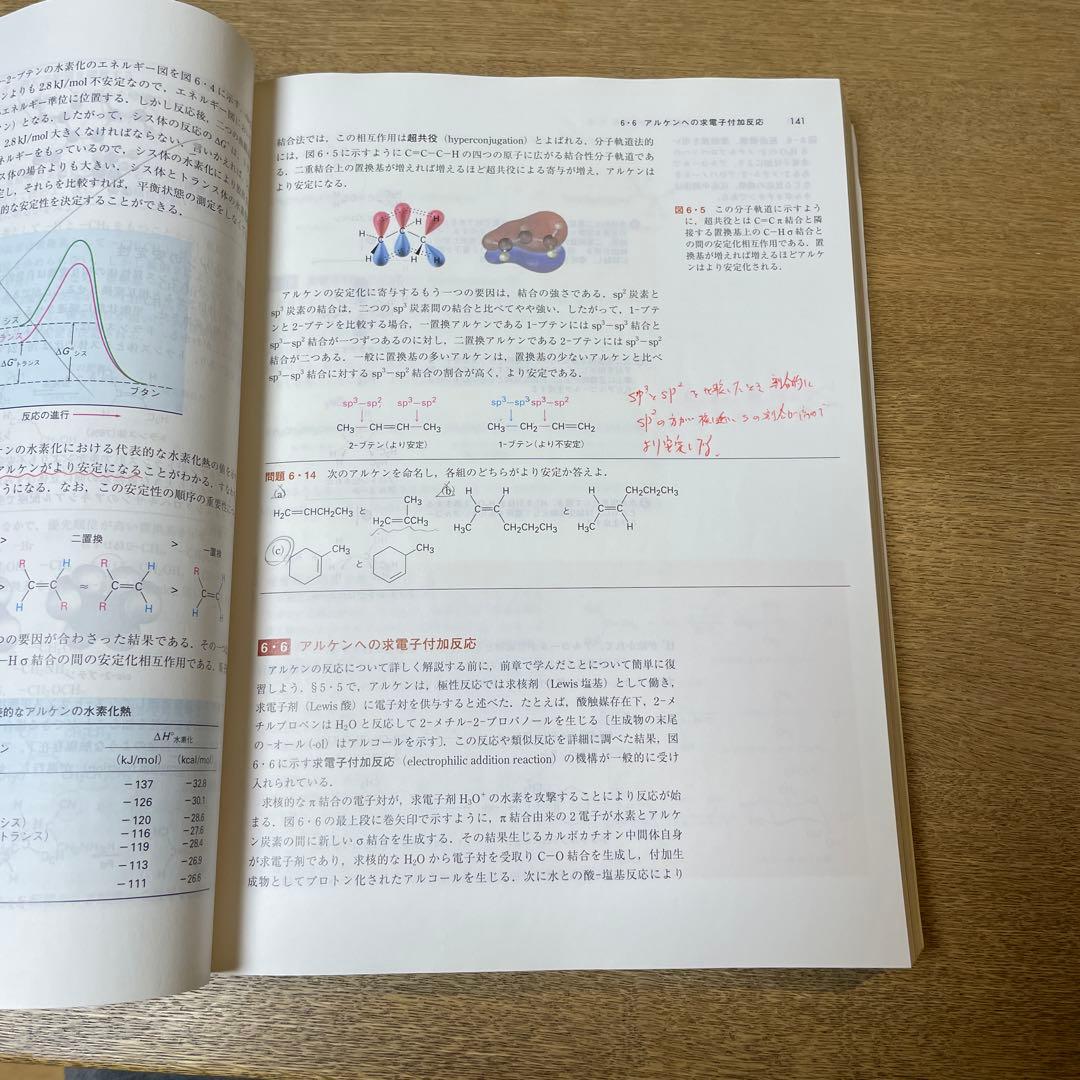 -2-ブテンの水素化のエネルギー図を図6・4に示す.
ンよりも2.8 kJ/mol不安定なので，エネルギー図に
エネルギー準位に位置する．しかし反応後，二つの
ン）となる．したがって，シス体の反応のΔG°は，
2.8 kJ/mol 大きくなければならない．言いかえれば，
ネルギーをもっているので，シス体の水素化により
ス体の場合よりも大きい．シス体とトランス体の水素
定し，それらを比較すれば，平衡状態の測定をしなくて
的な安定性を決定することができる．
シス
ランス
ΔG°シス
ΔG°トランス
ブタン
反応の進行
ンの水素化における代表的な水素化熱の値を
アルケンがより安定になることがわかる．すなわ
うになる．なお，この安定性の順序の重要性につ
> 二置換 > 一置換
R H R H R H
> C=C ≈ C=C > C=C
H R R H H H
つの要因が合わさった結果である．その一つ
—Hσ結合の間の安定化相互作用である．
的なアルケンの水素化熱
ΔH°水素化
ン (kJ/mol) (kcal/mol)
−137 −32.8
−126 −30.1
シス) −120 −28.6
トランス) −116 −27.6
−119 −28.4
−113 −26.9
−111 −26.6
6・6 アルケンへの求電子付加反応 141
結合法では，この相互作用は超共役（hyperconjugation）とよばれる．分子軌道法的
には，図6・5に示すようにC=C−C−Hの四つの原子に広がる結合性分子軌道であ
る．二重結合上の置換基が増えれば増えるほど超共役による寄与が増え，アルケンは
より安定になる．
H H H C C C H H H
図6・5 この分子軌道に示すよう
に，超共役とはC=Cπ結合と隣
接する置換基上のC−Hσ結合と
の間の安定化相互作用である．置
換基が増えれば増えるほどアルケ
ンはより安定化される．
アルケンの安定化に寄与するもう一つの要因は，結合の強さである．sp²炭素と
sp³炭素の結合は，二つのsp³炭素間の結合と比べてやや強い．したがって，1-ブテ
ンと2-ブテンを比較する場合，一置換アルケンである1-ブテンにはsp³−sp³結合と
sp³−sp²結合が一つずつあるのに対し，二置換アルケンである2-ブテンにはsp³−sp²
結合が二つある．一般に置換基の多いアルケンは，置換基の少ないアルケンと比べ
sp³−sp³結合に対するsp³−sp²結合の割合が高く，より安定である．
sp³−sp² sp³−sp² sp³−sp³ sp³−sp²
CH₃−CH=CH−CH₃ CH₃−CH₂−CH=CH₂
2-ブテン（より安定） 1-ブテン（より不安定）
sp³とsp²を比較したとき 割合的に
sp²の方が
より安定になる．
問題6・14 次のアルケンを命名し，各組のどちらがより安定か答えよ．
(a) H₂C=CHCH₂CH₃ と H₂C=CCH₃ CH₃
(b) H H C=C H₃C CH₂CH₂CH₃ と H CH₂CH₂CH₃ C=C H₃C H
(c) CH₃ と CH₃
6・6 アルケンへの求電子付加反応
アルケンの反応について詳しく解説する前に，前章で学んだことについて簡単に復
習しよう．§5・5で，アルケンは，極性反応では求核剤（Lewis塩基）として働き，
求電子剤（Lewis酸）に電子対を供与すると述べた．たとえば，酸触媒存在下，2-メ
チルプロペンはH₂Oと反応して2-メチル-2-プロパノールを生じる［生成物の末尾
の-オール(-ol)はアルコールを示す］．この反応や類似反応を詳細に調べた結果，図
6・6に示す求電子付加反応（electrophilic addition reaction）の機構が一般的に受け
入れられている．
求核的なπ結合の電子対が，求電子剤H₃O⁺の水素を攻撃することにより反応が始
まる．図6・6の最上段に巻矢印で示すように，π結合由来の2電子が水素とアルケ
ン炭素の間に新しいσ結合を生成する．その結果生じるカルボカチオン中間体自身
が求電子剤であり，求核的なH₂Oから電子対を受取りC−O結合を生成し，付加生
成物としてプロトン化されたアルコールを生じる．次に水との酸−塩基反応により